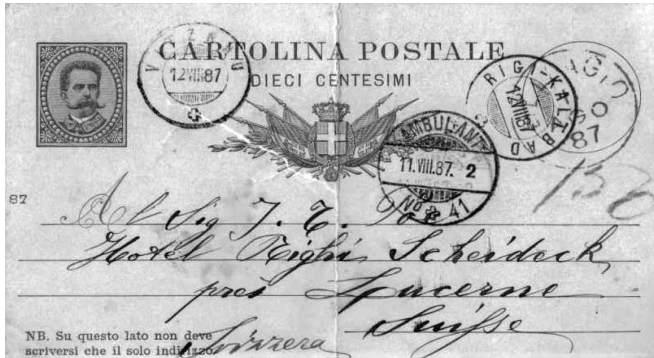 CARTOLINA POSTALE
DIECI CENTESIMI
12 VIII 87
RIGI-KALTBAD
12 VIII 87
87
AMBULANT
11. VIII. 87. 2
No 41
87
Al Sig J. T.
Hotel Righi Scheideck
près Lucerne
Suisse
Svizzera
NB. Su questo lato non deve
scriversi che il solo indirizzo